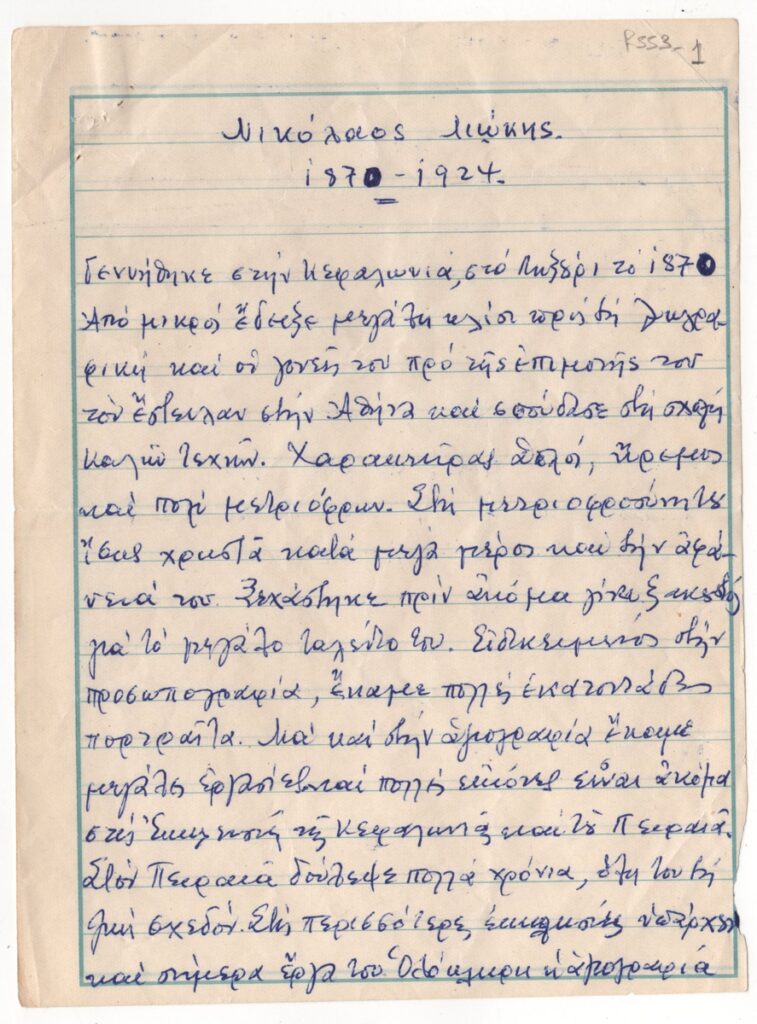 P553-1
Νικόλαος Λιώκης.
1870-1924.
Γεννήθηκε στήν Κεφαλωνιά, στό Ληξούρι τό 1870
Ἀπό μικρός ἔδειξε μεγάλη κλίσι πρός τή ζωγρα-
φική καί οἱ γονεῖς του πρό τῆς ἐπιμονῆς του
τόν ἔστειλαν στήν Ἀθήνα καί σπούδασε στή σχολή
Καλῶν Τεχνῶν. Χαρακτήρας ἁπλός, ἤρεμος
καί πολύ μετριόφρων. Στή μετριοφροσύνη του
ἴσως χρωστᾶ κατά μέγα μέρος καί τήν ἀφά-
νειά του. Ξεχάστηκε πρίν ἀκόμα γίνει ξακουστός
γιά τό μεγάλο ταλέντο του. Εἰδικευμένος στήν
προσωπογραφία, ἔκαμε πολλές ἑκατοντάδες
πορτραῖτα. Μά καί στήν ἁγιογραφία ἔκαμε
μεγάλες ἐργασίες καί πολλές εἰκόνες εἶναι ἀκόμα
στίς Ἐκκλησιές τῆς Κεφαλωνιᾶς καί τοῦ Πειραιᾶ.
Στόν Πειραιᾶ δούλεψε πολλά χρόνια, ὅλη του τή
ζωή σχεδόν. Στίς περισσότερες ἐκκλησίες ὑπάρχουν
καί σήμερα ἔργα του. Ὁλόκληρη ἡ ἁγιογραφία